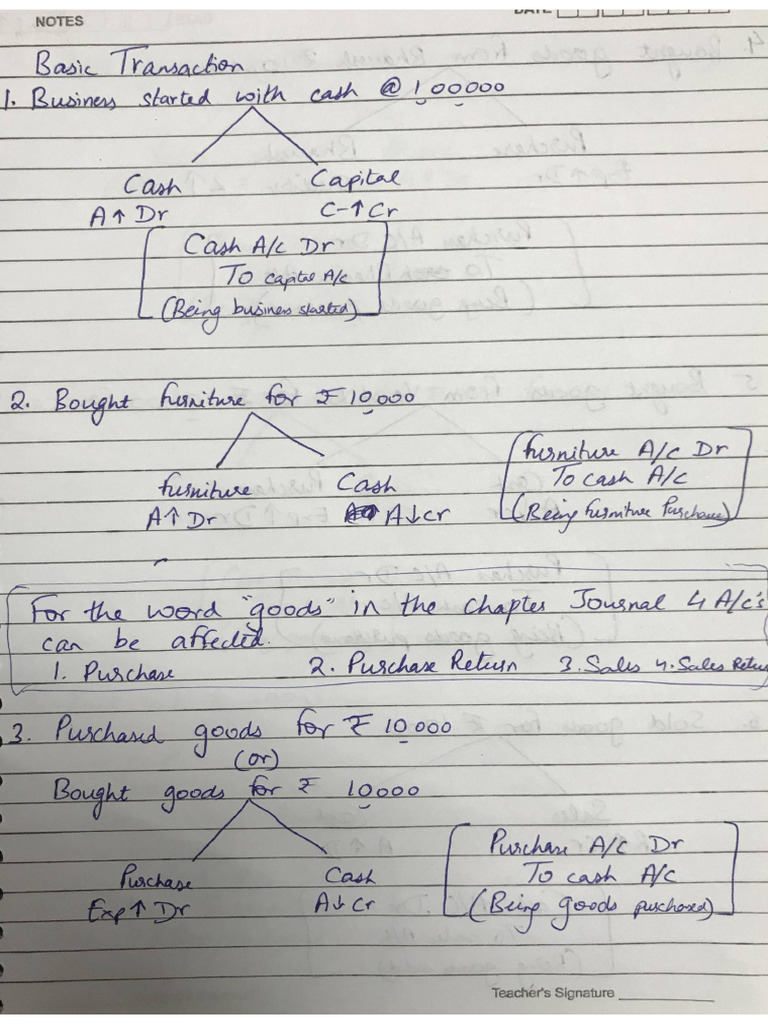 NOTES
DATE
Basic Transaction
1. Business started with cash @ 100000
Cash Capital
A↑ Dr C-↑ Cr
Cash A/c Dr
To capital A/c
(Being business started)
2. Bought furniture for ₹ 10,000
furniture Cash
A↑ Dr A↓ cr
furniture A/c Dr
To cash A/c
(Being furniture Purchase)
For the word "goods" in the chapter Journal 4 A/c's
can be affected.
1. Purchase 2. Purchase Return 3. Sales 4. Sales Retu
3. Purchased goods for ₹ 10000
(or)
Bought goods for ₹ 10000
Purchase Cash
Exp↑ Dr A↓ Cr
Purchase A/c Dr
To cash A/c
(Being goods purchased)
Teacher's Signature